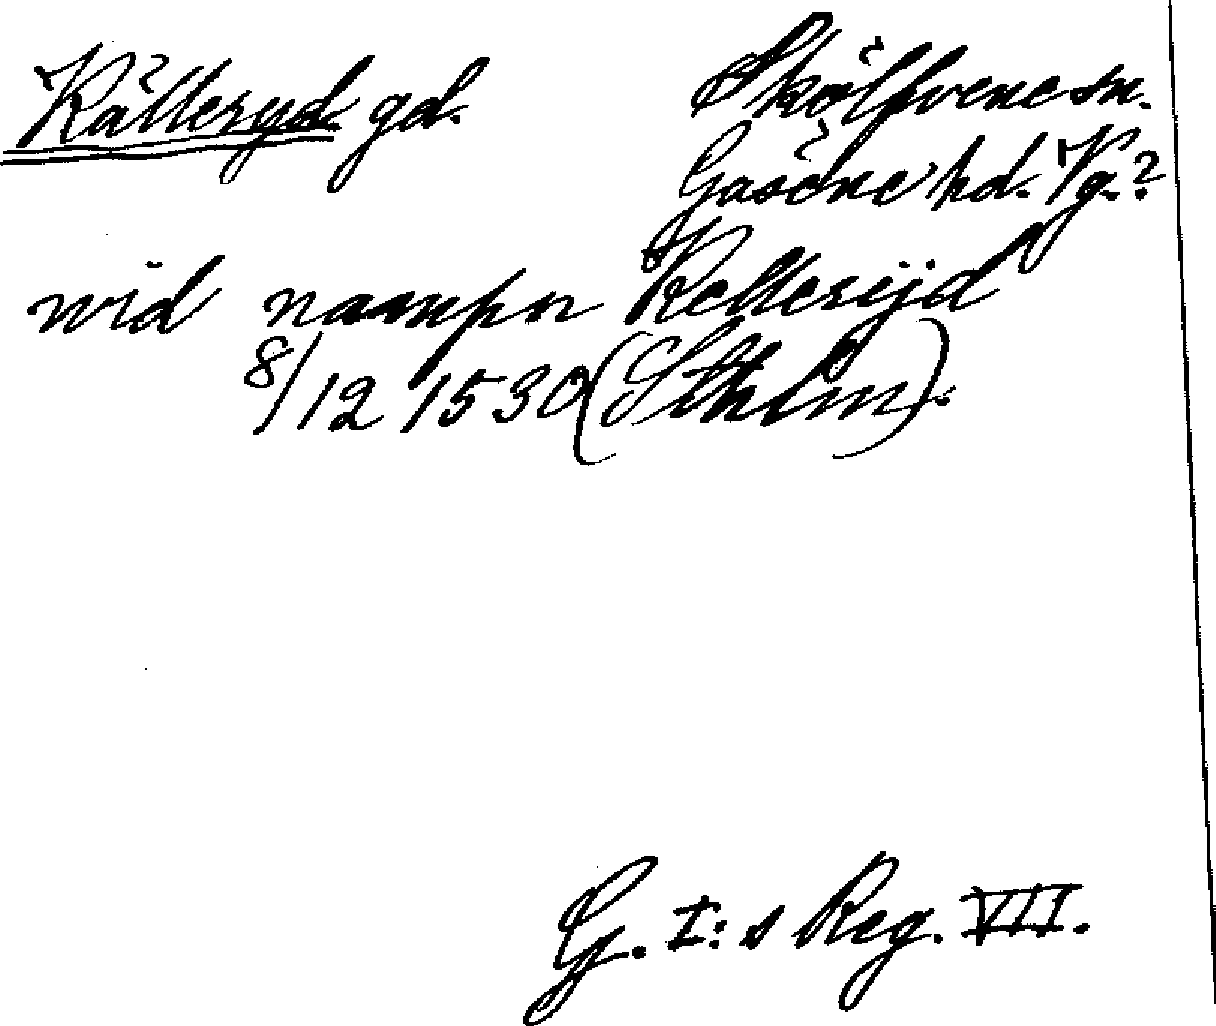 Källeryd gd. Skölfvene sn.
Gäsene hd. Vg.?
wid nampn Kelleryd
8/12 1530 (Sthlm).
G. I:s Reg. VII.